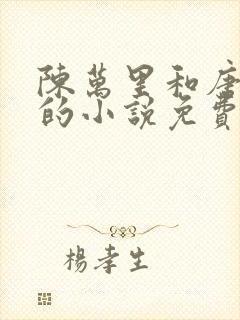 陳萬里和唐
的小說免費
楊孝生